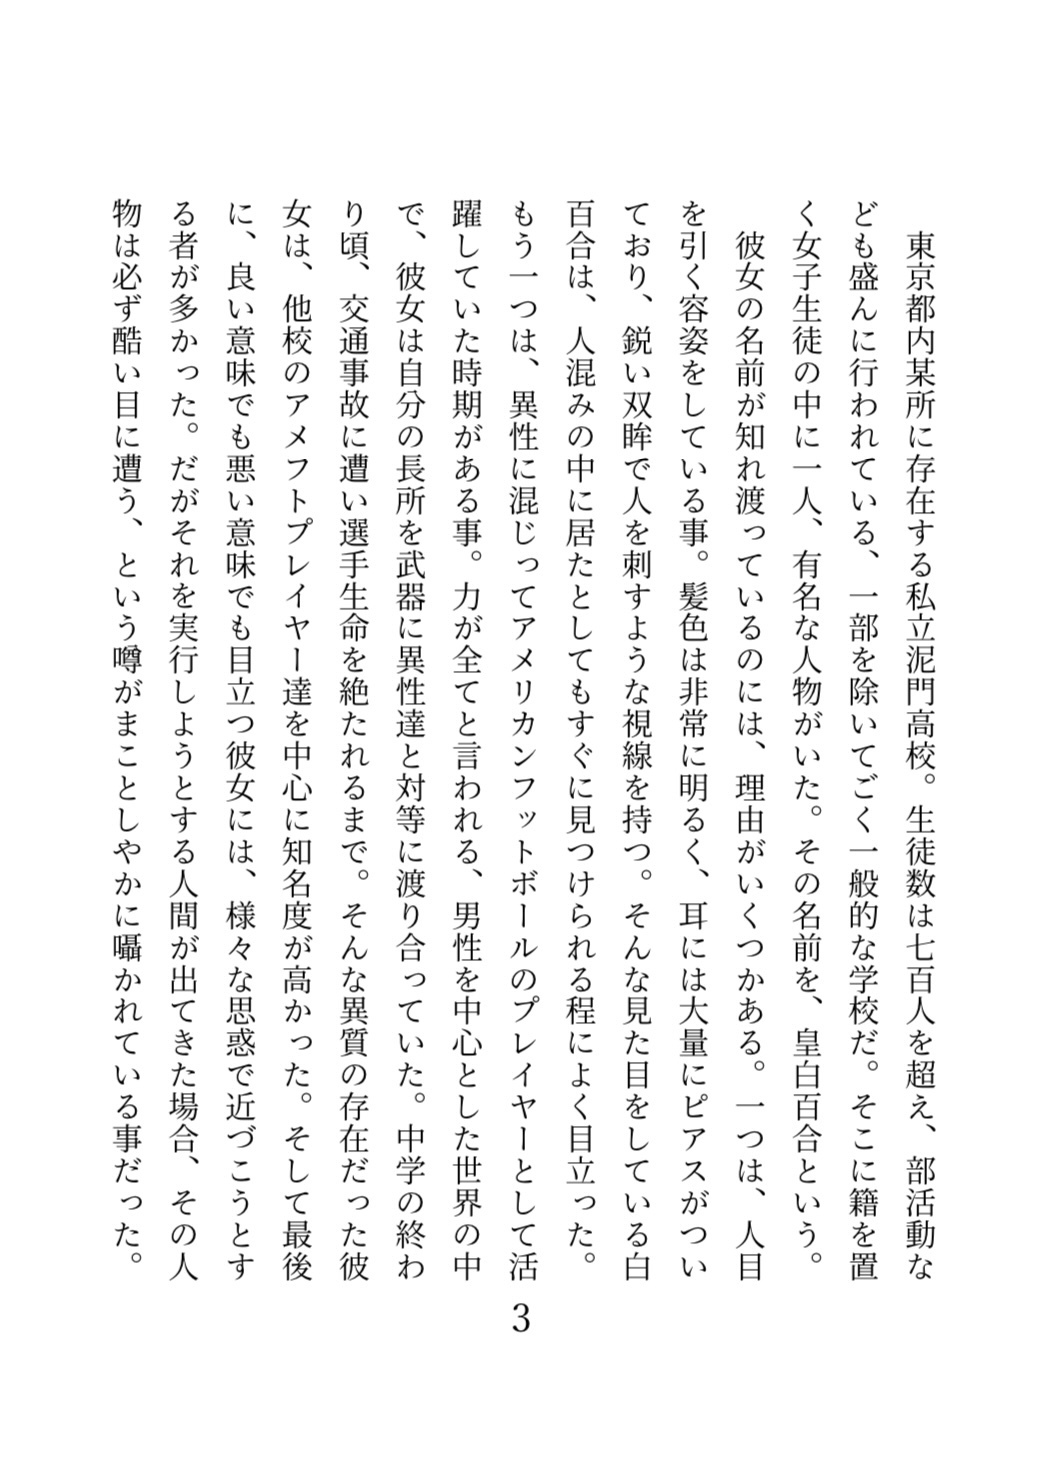 東京都内某所に存在する私立泥門高校。生徒数は七百人を超え、部活動な
ども盛んに行われている、一部を除いてごく一般的な学校だ。そこに籍を置
く女子生徒の中に一人、有名な人物がいた。その名前を、皇白百合という。
　彼女の名前が知れ渡っているのには、理由がいくつかある。一つは、人目
を引く容姿をしている事。髪色は非常に明るく、耳には大量にピアスがつい
ており、鋭い双眸で人を刺すような視線を持つ。そんな見た目をしている白
百合は、人混みの中に居たとしてもすぐに見つけられる程によく目立った。
もう一つは、異性に混じってアメリカンフットボールのプレイヤーとして活
躍していた時期がある事。力が全てと言われる、男性を中心とした世界の中
で、彼女は自分の長所を武器に異性達と対等に渡り合っていた。中学の終わ
り頃、交通事故に遭い選手生命を絶たれるまで。そんな異質の存在だった彼
女は、他校のアメフトプレイヤー達を中心に知名度が高かった。そして最後
に、良い意味でも悪い意味でも目立つ彼女には、様々な思惑で近づこうとす
る者が多かった。だがそれを実行しようとする人間が出てきた場合、その人
物は必ず酷い目に遭う、という噂がまことしやかに囁かれている事だった。
3